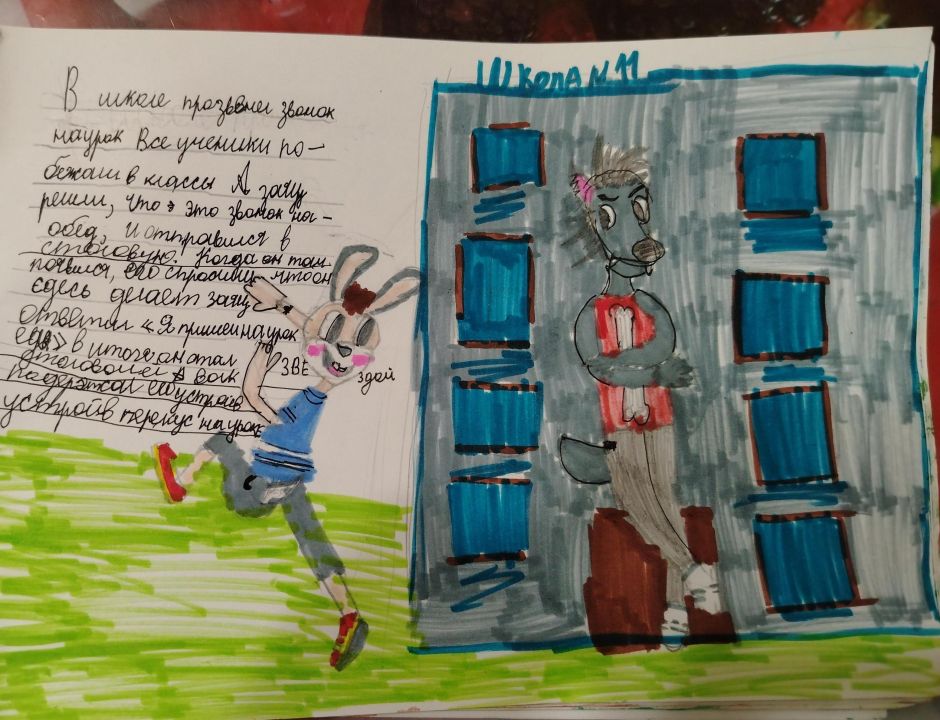 Школа №11
В школе прозвенел звонок
на урок Все ученики по-
бежали в классы А заяц
решил, что это звонок на
обед, и отправился в
столовую. Когда он там
появился, его спросили что он
сдесь делает заяц
ответил «Я пришел на урок
еды» в итоге он стал
волк
устроив перекус на уроке
ЗВЕ
здой